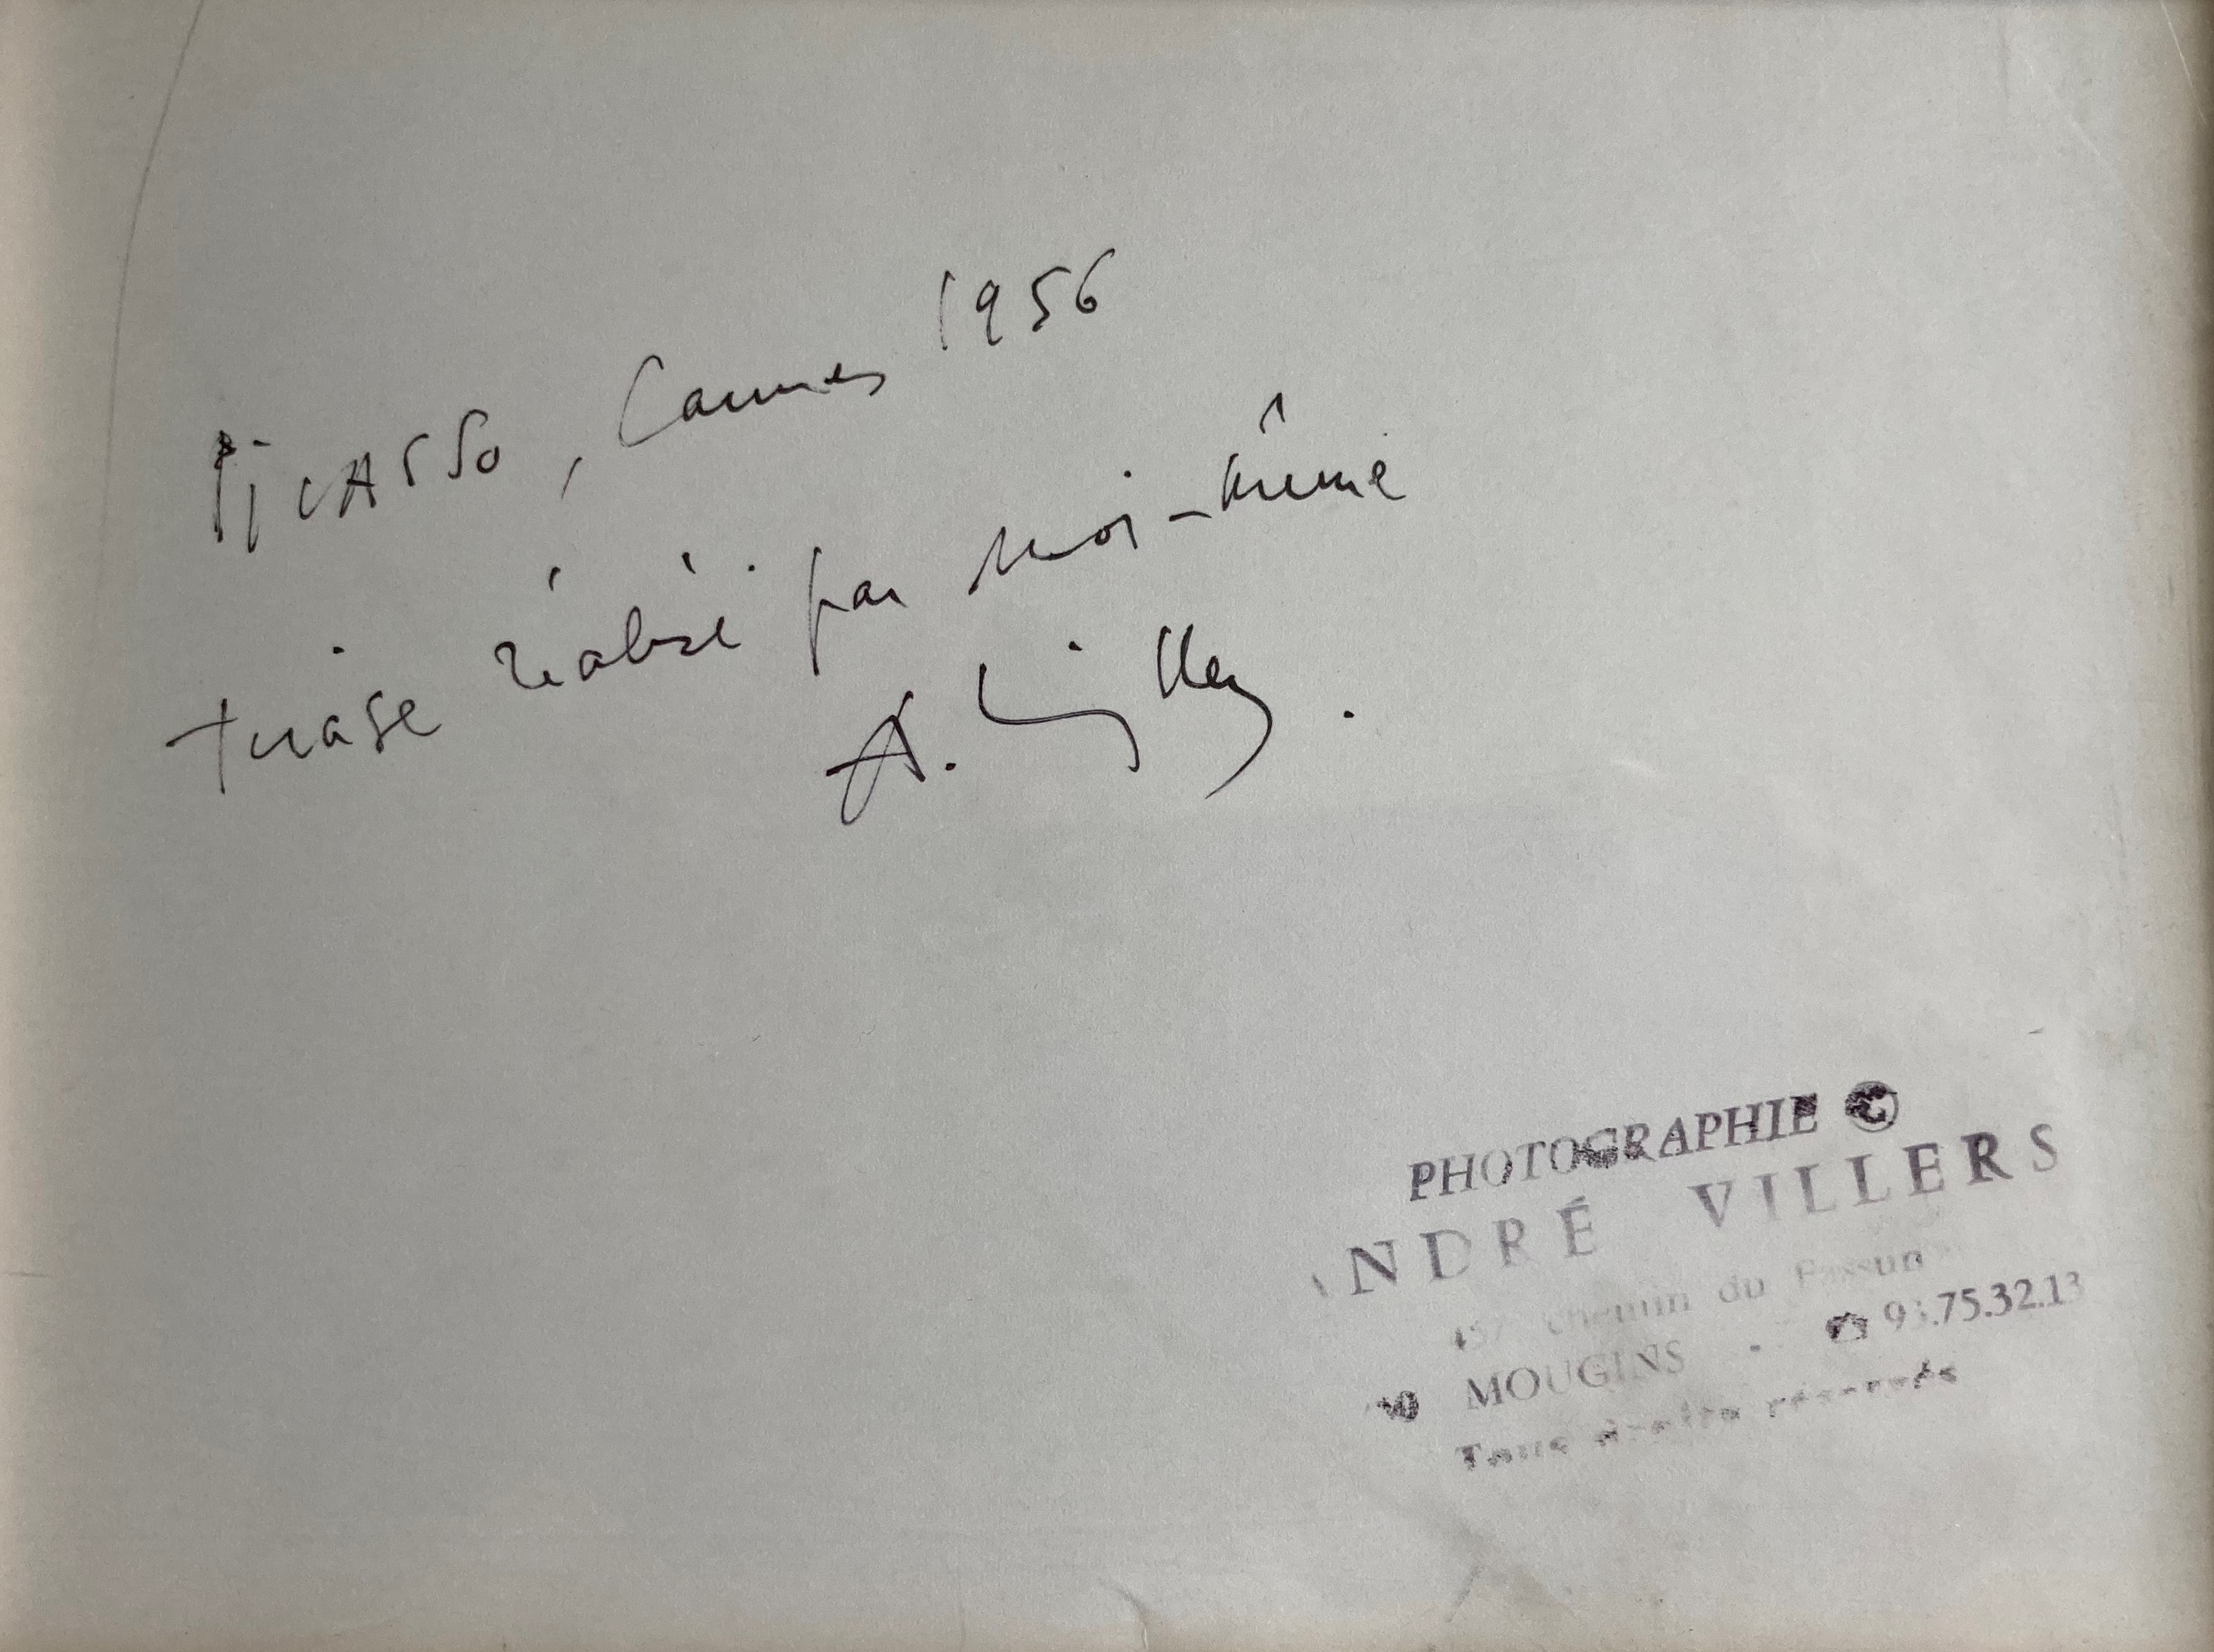 Picasso, Cannes 1956
tirage réalisé par moi-même
A. Villers.
PHOTOGRAPHIE ©
ANDRÉ VILLERS
chemin du Fassum
MOUGINS - ☎ 93.75.32.13
Tous droits réservés